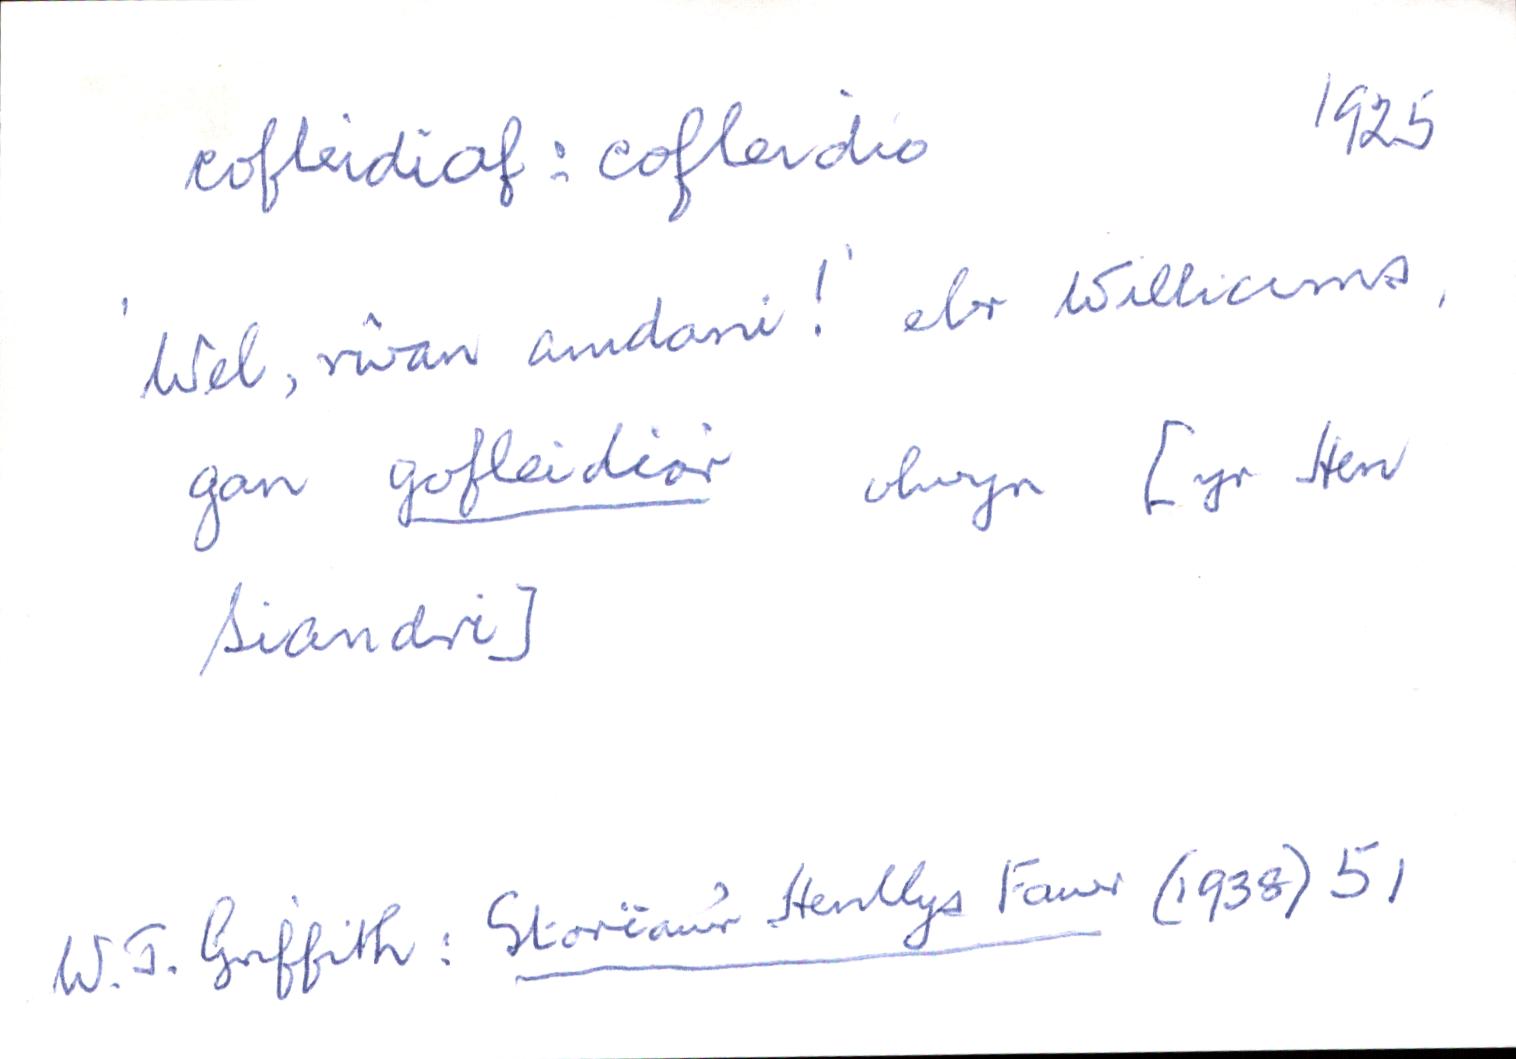 cofleidiaf: cofleidio 1925
'Wel, rŵan amdani!' ebr Williams,
gan gofleidio'r olwyn [yr Hen
Siandri]
W. J. Griffith: Storïau'r Henllys Fawr (1938) 51